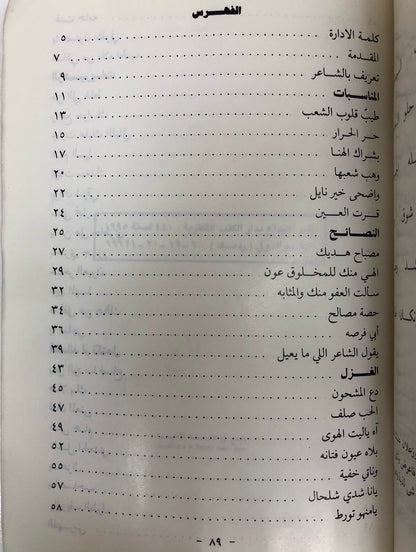 الفهرس
كلمة الادارة ٥
المقدمة ٧
تعريف بالشاعر ٩
المناسبات ١١
طيبّ قلوب الشعب ١٣
حر الحرار ١٥
بشراك الهنا ١٧
وهب شعبها ٢٠
واضحى خير نايل ٢٢
قرت العين ٢٤
النصائح ٢٥
مصباح هديك ٢٧
الهي منك للمخلوق عون ٢٩
سالت العفو منك والمثابه ٣٢
حصة مصالح ٣٤
أبي فرصه ٣٦
يقول الشاعر اللي ما يعيل ٣٩
الغزل ٤٣
دع المشحون ٤٥
الحب صلف ٤٧
آه ياليت الهوى ٤٩
بلاه عيون فتانه ٥٢
وناتي خفية ٥٥
يانا شدي شلحال ٥٧
يامنهو تورط ٥٨
- ٨٩ -